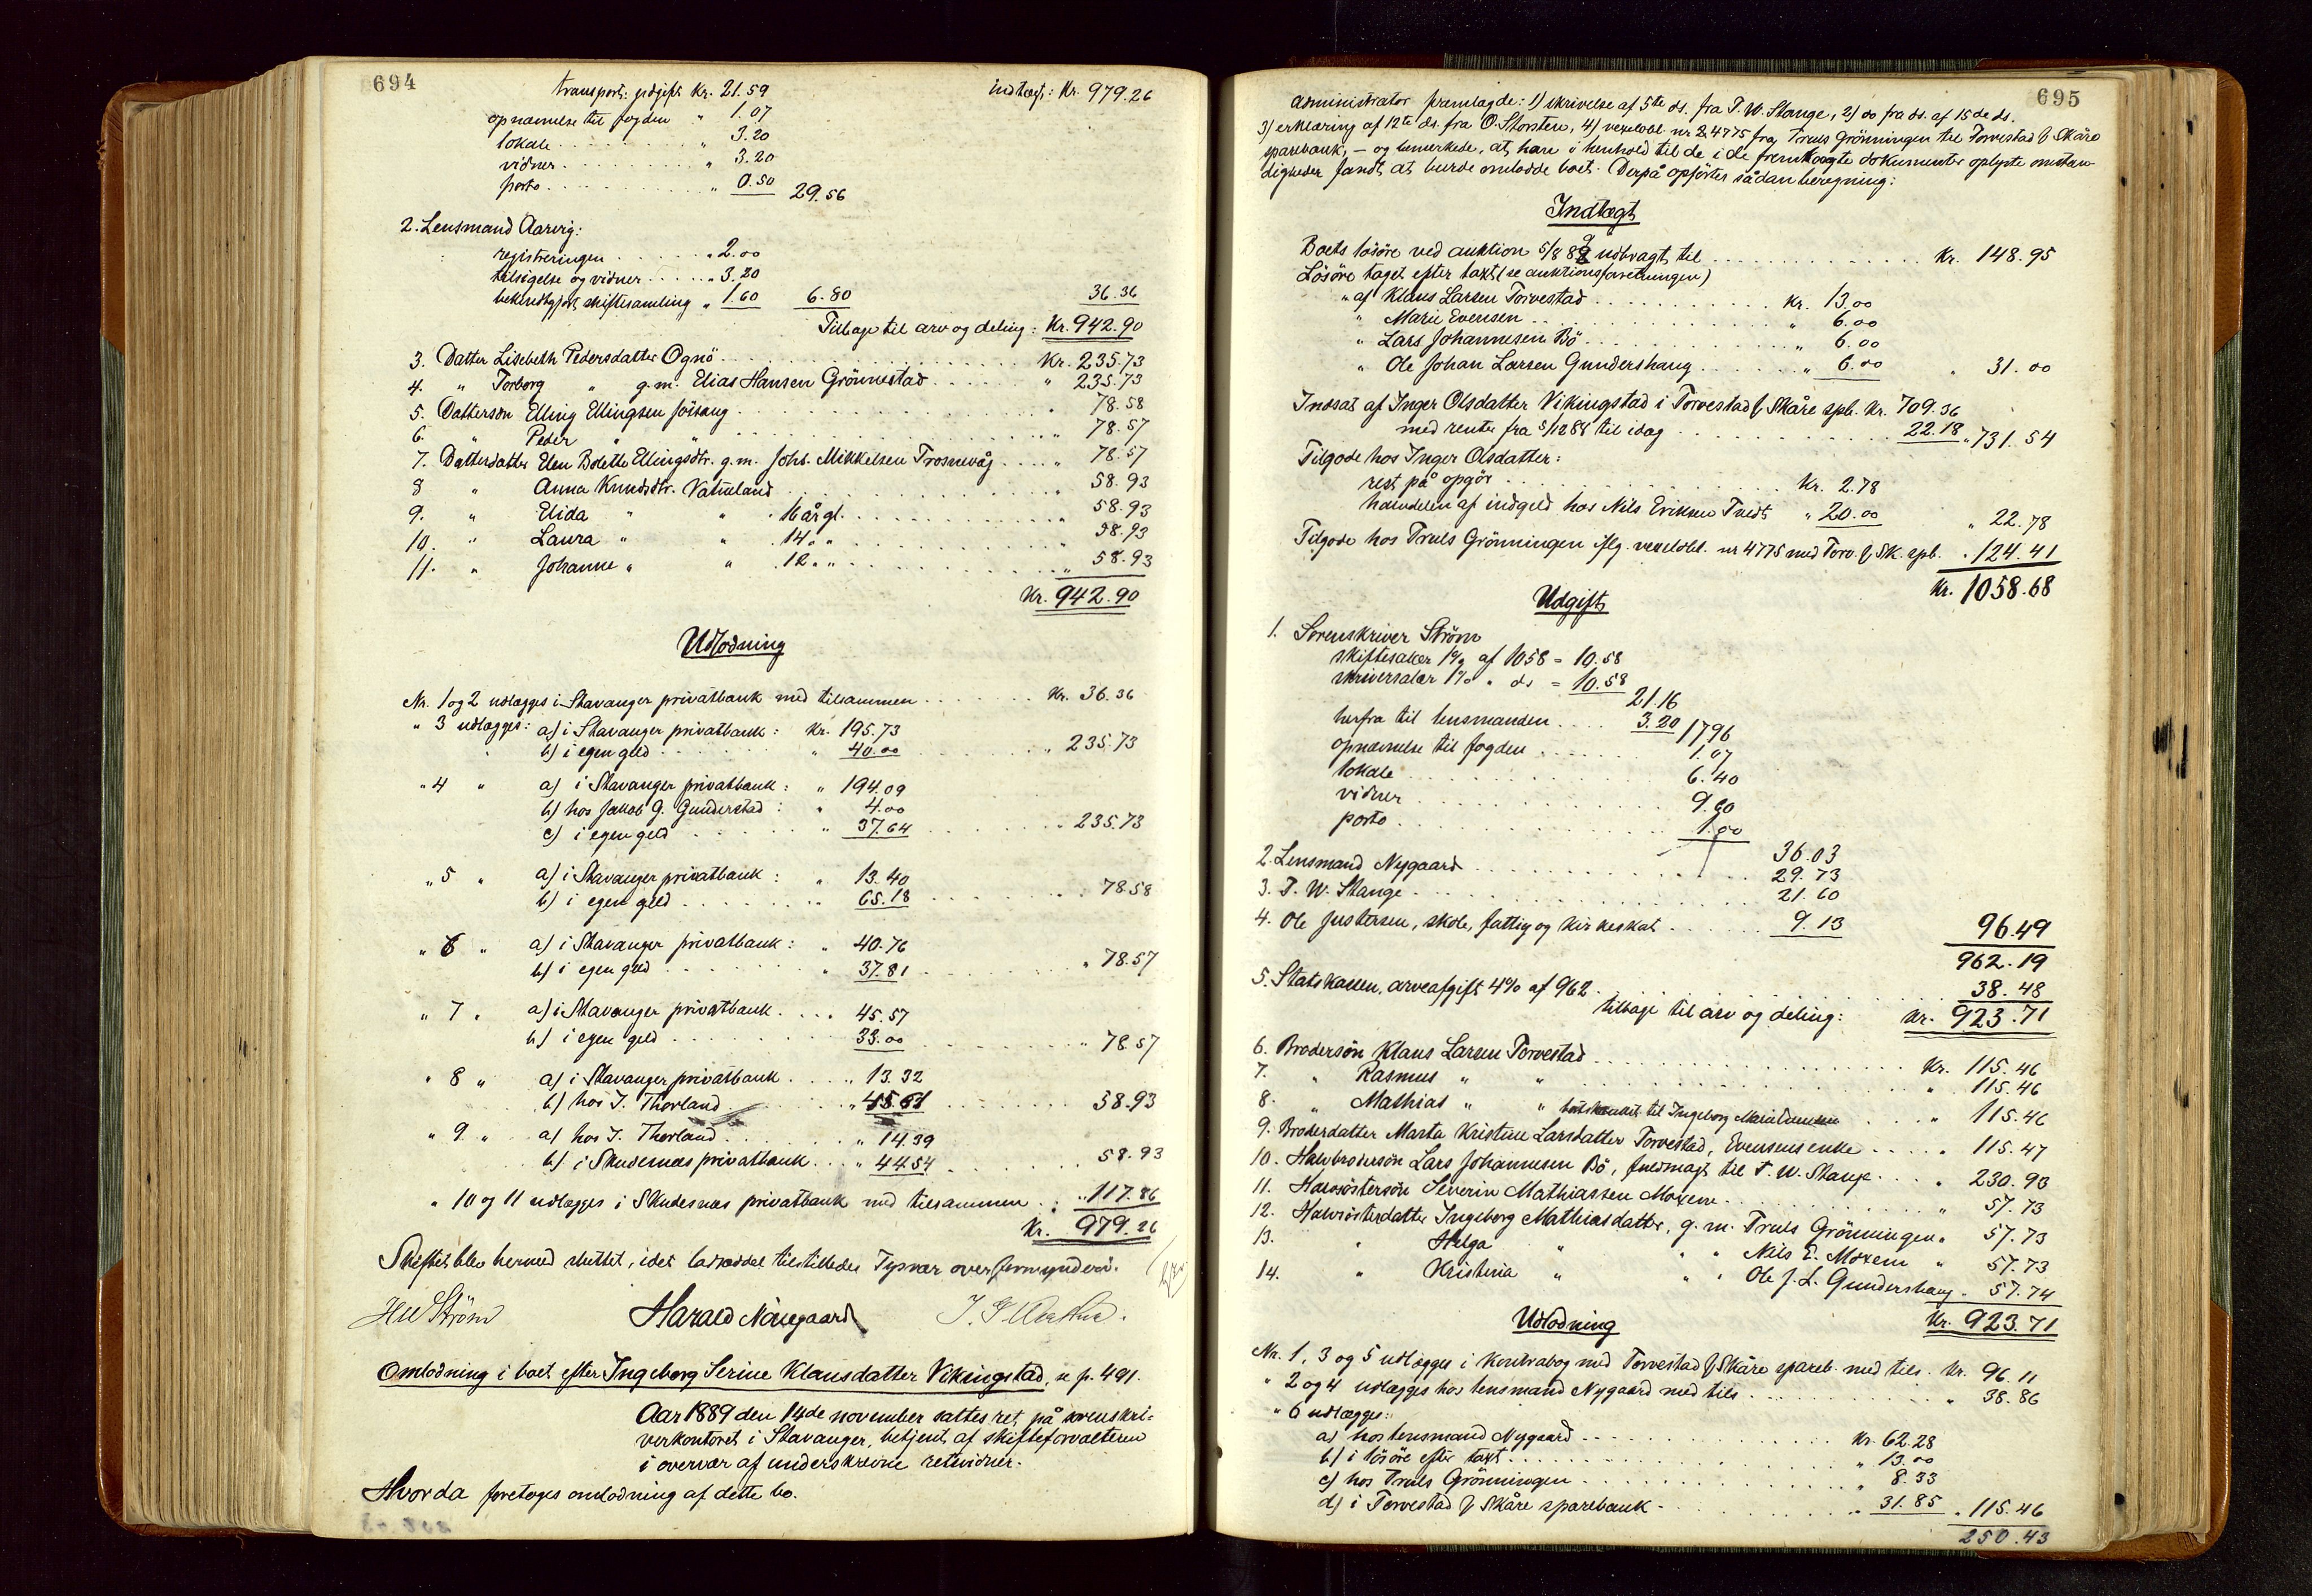 694
transport: udgift Kr. 21.59 indtægt: Kr. 979.26
opnævnelse til fogden " 1.07
lokale " 3.20
vidner " 3.20
porto " 0.50 29.56
2. Lensmand Aarvig:
registreringen " 2.00
tilsigelse og vidner " 3.20
bekjendtgjort skiftesamling " 1.60 6.80 36.36
Tilbage til arv og deling: Kr. 942.90
3. Datter Lisebeth Pedersdatter Ognö Kr. 235.73
4. " Torborg " g.m. Elias Hansen Grönnestad " 235.73
5. Dattersön Elling Ellingsen Jösang " 78.58
6. " Peder " " " 78.57
7. Datterdatter Elen Bolette Ellingsdtr. g.m. Johs. Mikkelsen Trosnevåg " 78.57
8 " Anna Knudsdtr. Vatneland " 58.93
9. " Elida " " 16 årgl. " 58.93
10. " Laura " " 14 " " " 58.93
11. " Johanne " " 12 " " " 58.93
Kr. 942.90
Udlodning
Nr. 1 og 2 udlægges i Stavanger privatbank med tilsammen Kr. 36.36
" 3 udlægges: a) i Stavanger privatbank: Kr. 195.73
b) i egen geld " 40.00 " 235.73
" 4 " a) i Stavanger privatbank: " 194.09
b) hos Jakob G. Gunderstad: " 4.00
c) i egen geld " 37.64 " 235.73
" 5 " a) i Stavanger privatbank: " 13.40
b) i egen geld " 65.18 " 78.58
" 6 " a) i Stavanger privatbank: " 40.76
b) i egen geld " 37.81 " 78.57
" 7 " a) i Stavanger privatbank " 45.57
b) i egen geld " 33.00 " 78.57
" 8 " a) i Stavanger privatbank " 13.32
b) hos T. Thorland " 45.61 58.93
" 9 " a) hos T. Thorland " 14.39
b) i Skudesnæs privatbank " 44.54 58.93
" 10 og 11 udlægges i Skudesnæs privatbank med tilsammen " 117.86
Kr. 979.26
Skiftet blev hermed sluttet, idet lodseddel tilstilledes Tysvær overformynderi.
HW Ström Harald Nörregaard
Omlodning i boet efter Ingeborg Serine Klausdatter Vikingstad, se p. 491.
Aar 1889 den 14de november sattes ret på sorenskri-
verkontoret i Stavanger, betjent af skifteforvalteren
i overvær af underskrevne retsvidner.
Hvorda foretoges omlodning af dette bo.
695
Administrator fremlagde: 1) skrivelse af 5te ds. fra T. W. Stange, 2) do fra ds. af 15de ds.
3) erklæring af 12te ds. fra O. Storsten, 4) vexelobl. nr 4775 fra Truls Grönningen til Torvestad & Skåre
sparebank, – og bemerkede, at han i henhold til de i de fremlagte dokumenter oplyste omstæn-
digheder fandt at burde omlodde boet. Derpå opförtes sådan beregning:
Indtægt
Boets lösöre ved auktion 5/8 89 udbragt til Kr. 148.95
Lösöre taget efter taxt (se auktionsforretningen)
" af Klaus Larsen Torvestad Kr. 13.00
" Marie Evensen " 6.00
" Lars Johannesen Bö " 6.00
" Ole Johan Larsen Gundershaug " 6.00 " 31.00
Indsat af Inger Olsdatter Vikingstad i Torvestad & Skåre spb. Kr. 709.36
med rente fra 5/12 88 til idag 22.18 " 731.54
Tilgode hos Inger Olsdatter:
rest på opgör Kr. 2.78
halvdelen af indgeld hos Nils Eriksen Tvedt " 20.00 " 22.78
Tilgode hos Truls Grönningen iflg. vexelobl. nr 4775 med Torv. & Sk. spb. " 124.41
Kr. 1058.68
Udgift
1. Sorenskriver Ström
skiftesalær 1% af 1058 = 10.58
skriversalær 1% " ds = 10.58
21.16
herfra til lensmanden 3.20 17.96
opnævnelse til fogden 1.07
lokale 6.40
vidner 9.60
porto 1.00
36.03
2. Lensmand Nygaard 29.73
3. T. W. Stange 21.60
4. Ole Justersen, skole, fattig og kirkeskat 9.13 96.49
962.19
5. Statskassen, arveafgift 4% af 962 38.48
tilbage til arv og deling: Kr. 923.71
6. Brodersön Klaus Larsen Torvestad Kr. 115.46
7. " Rasmus " " " 115.46
8. " Mathias " " til Ingeborg Maria " 115.46
9. Broderdatter Marta Kristine Larsdatter Torvestad, Evensens enke " 115.47
10. Halvbrodersön Lars Johannesen Bö, fuldmagt til T. W. Stange " 230.93
11. Halvsöstersön Severin Mathiassen Moxem " 57.73
12. Halvsösterdatter Ingeborg Mathiasdatter, g.m. Truls Grönningen " 57.73
13. " Helga " " " Nils E. Moxem " 57.73
14. " Kristina " " " Ole J. L. Gundershaug " 57.74
Kr. 923.71
Udlodning
Nr. 1, 3 og 5 udlægges i kontrabog med Torvestad & Skåre spareb. med tils. Kr. 96.11
" 2 og 4 udlægges hos lensmand Nygaard med tils " 38.86
" 6 udlægges:
a) hos lensmand Nygaard Kr. 62.28
b) i lösöre efter taxt " 13.00
c) hos Truls Grönningen " 8.33
d) i Torvestad & Skåre sparebank " 31.85 " 115.46
250.43